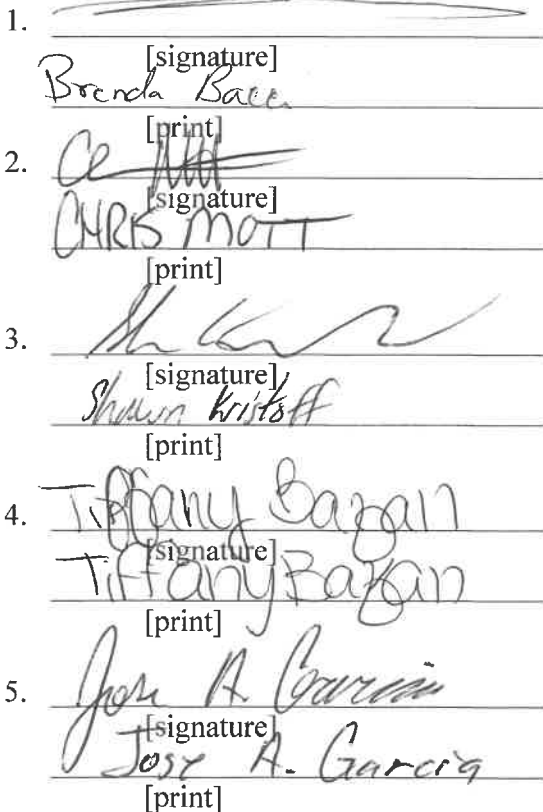 1.
[signature]
Brenda
[print]
2.
[signature]
CHRIS MOTT
[print]
3.
[signature]
Shawn Kristoff
[print]
4. Tiffany Bazan
[signature]
Tiffany Bazan
[print]
5. Jose A. Garcia
[signature]
Jose A. Garcia
[print]